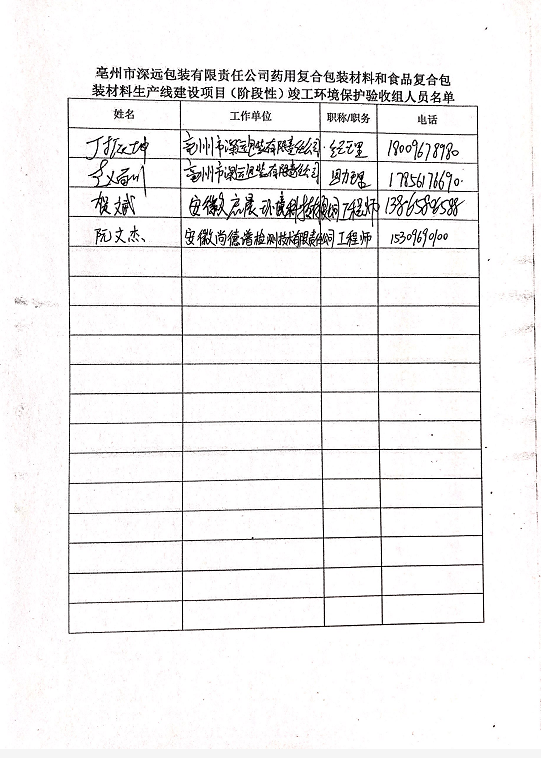 亳州市深远包装有限责任公司药用复合包装材料和食品复合包
装材料生产线建设项目（阶段性）竣工环境保护验收组人员名单
姓名 工作单位 职称/职务 电话
丁振坤 亳州市深远包装有限责任公司 经理 18009678980
亳州市深远包装有限责任公司 副经理 17856176690
程斌 安徽 环境科技有限公司 工程师 13865858588
阮文杰 安徽尚德谱检测技术有限责任公司 工程师 15309690100